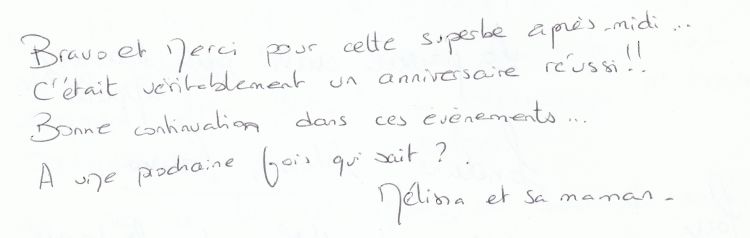 Bravo et Merci pour cette superbe après-midi...
C'était véritablement un anniversaire réussi!!
Bonne continuation dans ces évènements...
A une prochaine fois qui sait ?.
Mélissa et sa maman.